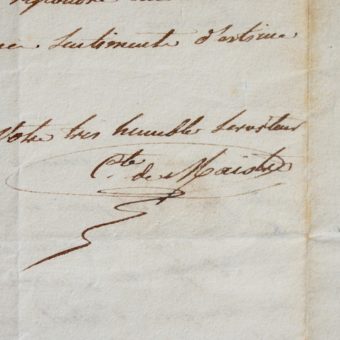 répondre
sentiments d'estime
Votre très humble serviteur
Cte de Maistre